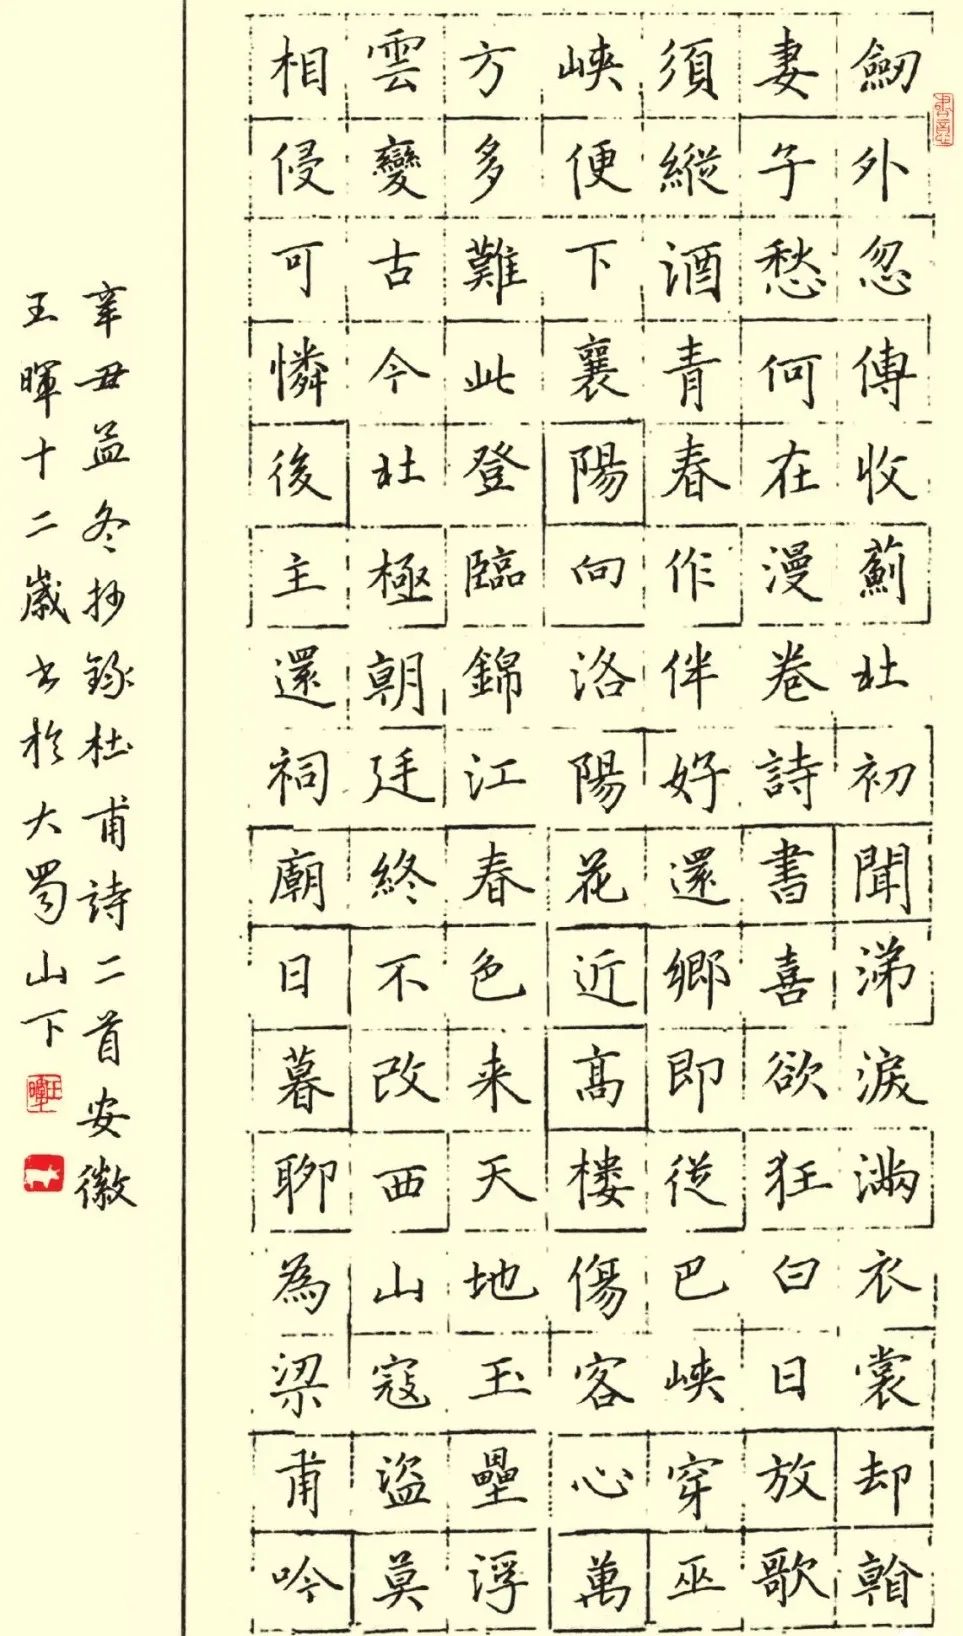 劒外忽傳收薊北初聞涕淚滿衣裳却看
妻子愁何在漫卷詩書喜欲狂白日放歌
須縱酒青春作伴好還鄉即從巴峽穿巫
峽便下襄陽向洛陽花近髙樓傷客心萬
方多難此登臨錦江春色来天地玉壘浮
雲變古今北極朝廷終不改西山寇盜莫
相侵可憐後主還祠廟日暮聊為梁甫吟
辛丑孟冬抄錄杜甫詩二首安徽
王暉十二歲书於大蜀山下
王暉